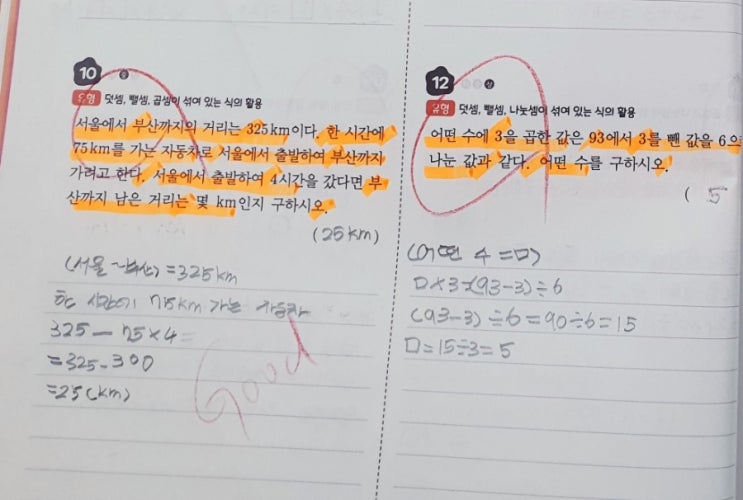 10
유형 덧셈, 뺄셈, 곱셈이 섞여 있는 식의 활용
서울에서 부산까지의 거리는 325km이다. 한 시간에
75km를 가는 자동차로 서울에서 출발하여 부산까지
가려고 한다. 서울에서 출발하여 4시간을 갔다면 부
산까지 남은 거리는 몇 km인지 구하시오.
(25km)
(서울~부산)=325km
한 시간에 75km 가는 자동차
325-75×4=
=325-300
=25(km)
Good
12 중 상
유형 덧셈, 뺄셈, 나눗셈이 섞여 있는 식의 활용
어떤 수에 3을 곱한 값은 93에서 3를 뺀 값을 6으
나눈 값과 같다. 어떤 수를 구하시오.
( 5
(어떤 수=□)
□×3=(93-3)÷6
(93-3)÷6=90÷6=15
□=15÷3=5